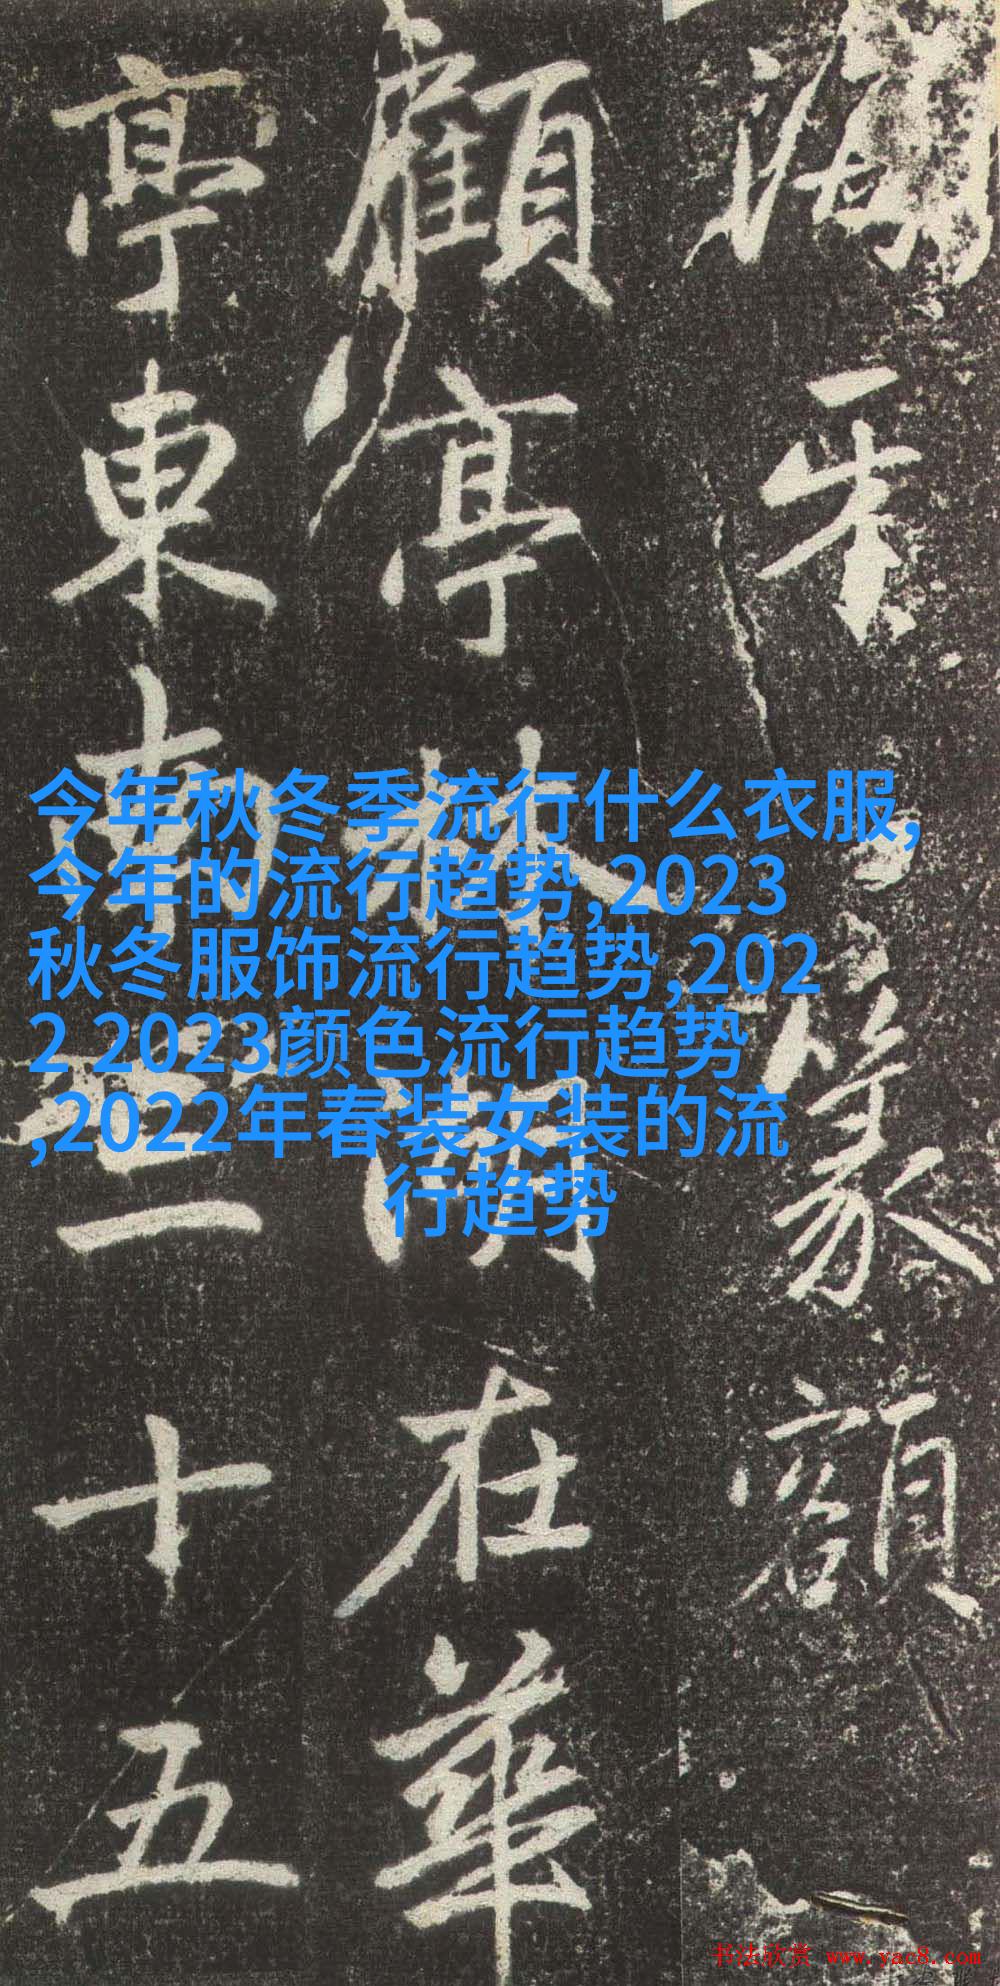 今年秋冬季流行什么衣服,
今年的流行趋势,2023
秋冬服饰流行趋势,202
2 2023颜色流行趋势
,2022年春装女装的流
行趋势
篆額
顧亭林湖在華
亭東南三十五
书法欣赏 www.yac8.com